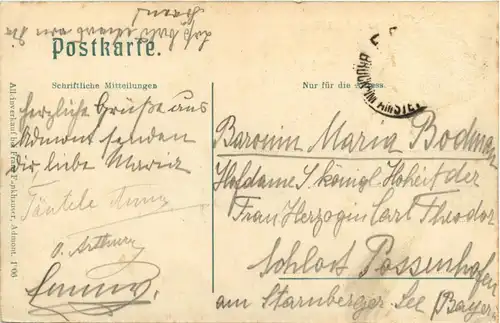 Postkarte.
Schriftliche Mitteilungen
Nur für die
herzliche Grüße aus
Admont senden
dir, liebe Maria
Tantele Anna
Baronin Maria Bodman
Hofdame S. königl. Hoheit der
Frau Herzogin Carl Theodor
Schloss Possenhofen
am Starnberger See (Bayern
Alleinverkauf für Franz Admont. 1906